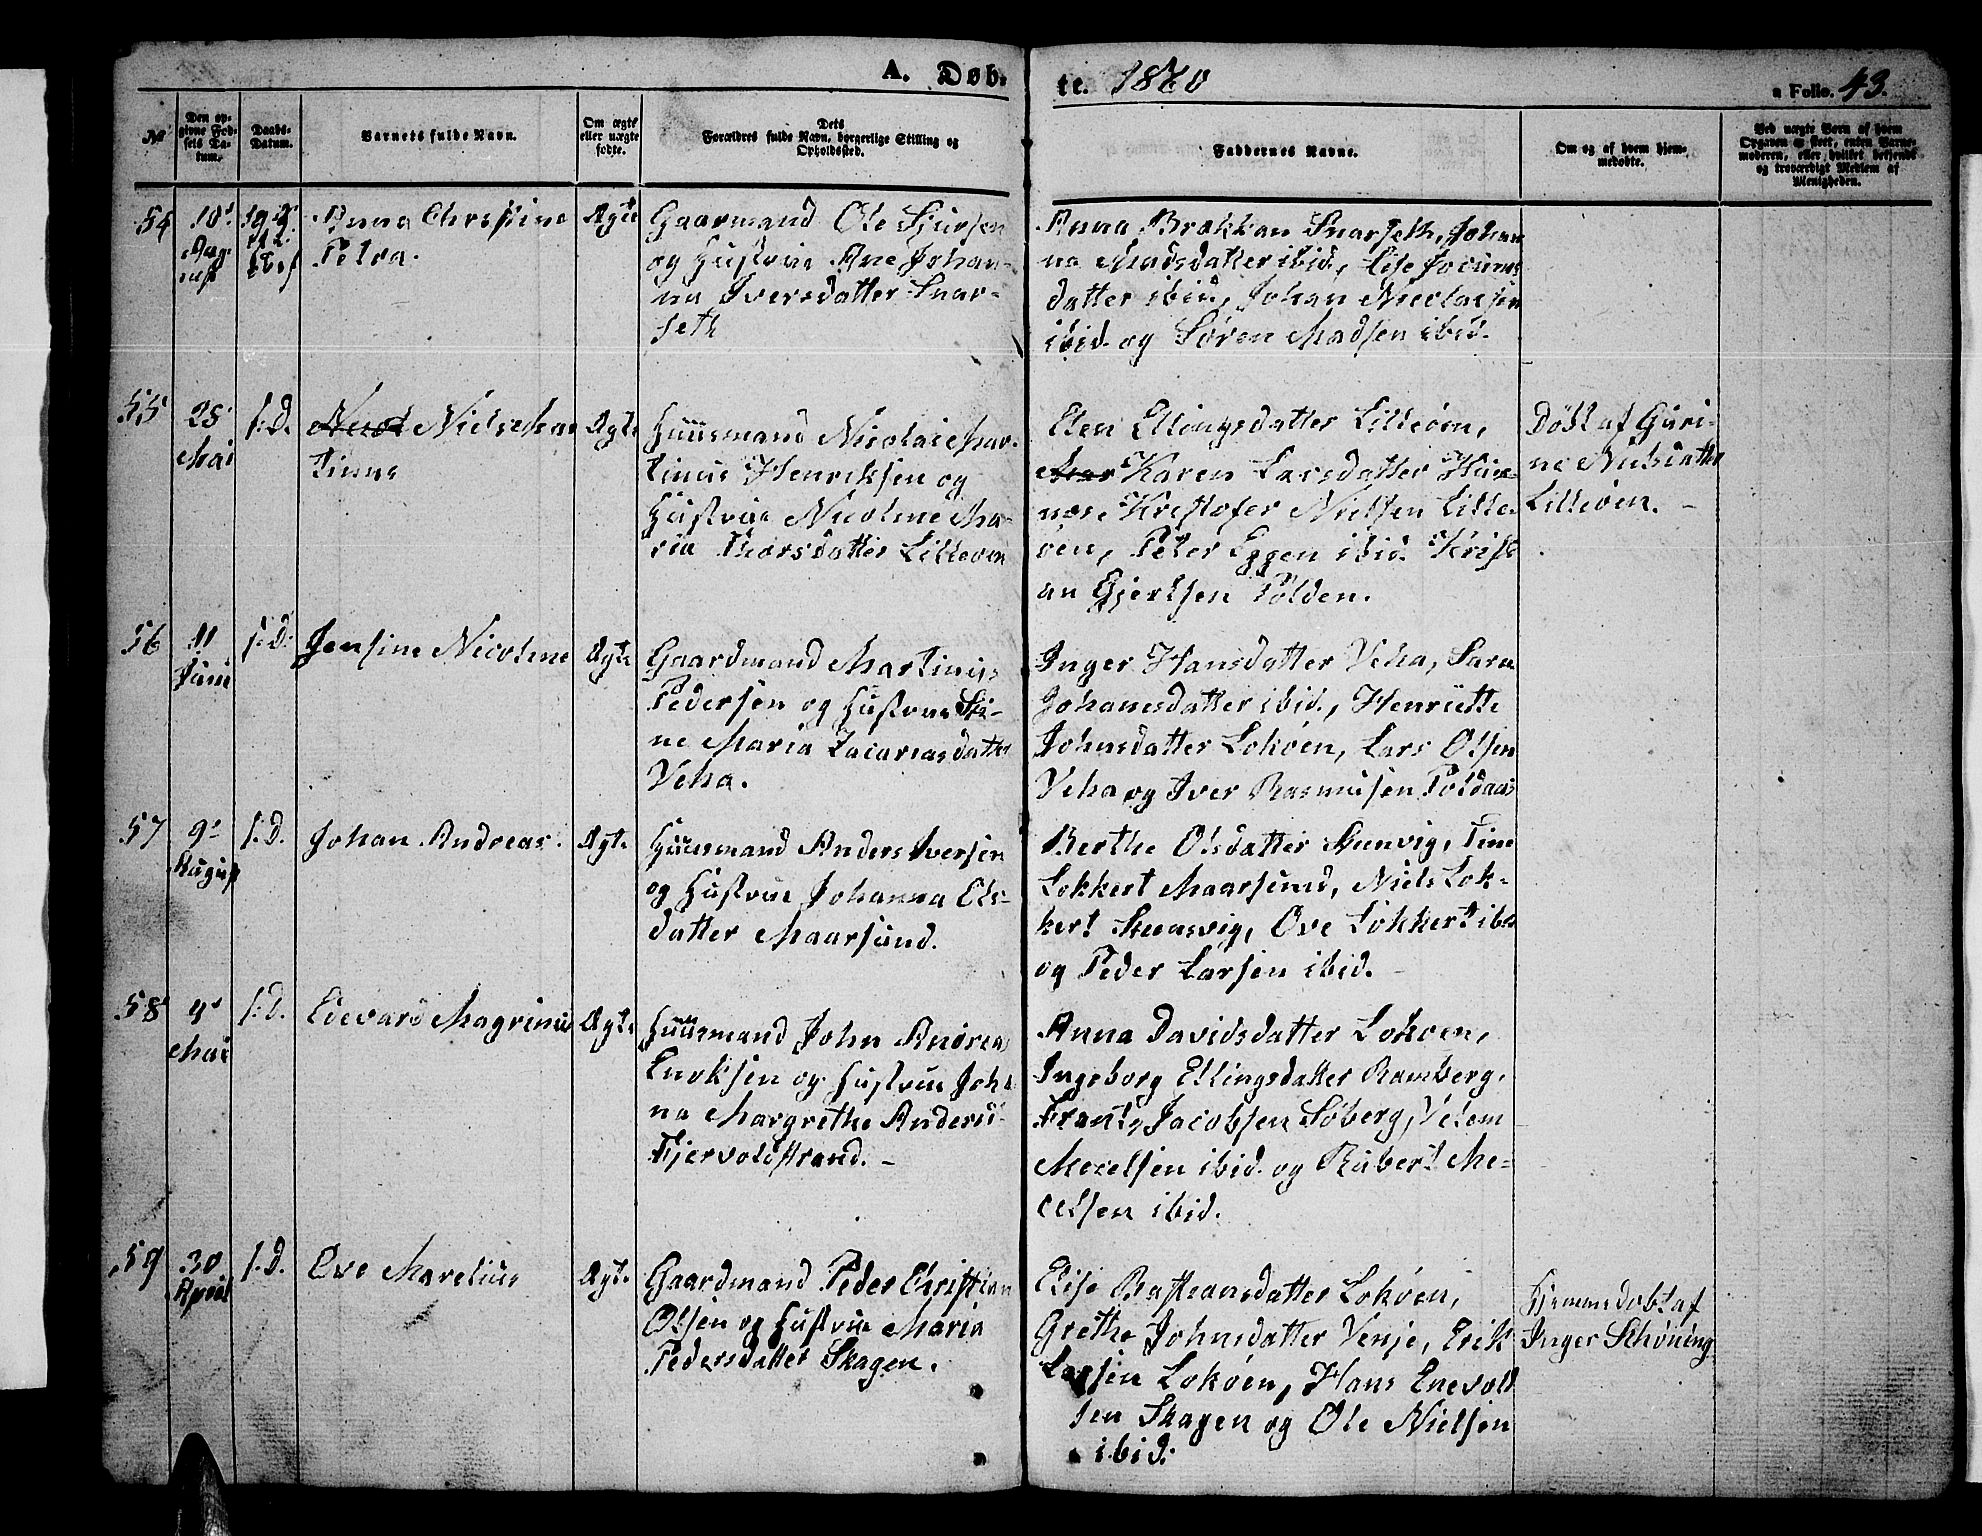 A. Døb-
te. 1860
a Folio. 43.
№
Den op-
givne Fød-
sels Da-
tum.
Daabs-
Datum.
Barnets fulde Navn.
Om ægte
eller uægte
fødte.
Dets
Forældres fulde Navn, borgerlige Stilling og
Opholdssted.
Faddernes Navne.
Om og af hvem hjem-
medøbte.
Ved uægte Børn af hvem
Opgaven er skeet, enten Barne-
moderen, eller hvilket betjende
og troværdigt Medlem af
Menigheden.
54
Anna Christine
Petra.
Ægte
Gaarmand Ole Sjursen
og Hustrue Ane Johan-
na Iversdatter Snar-
seth
Anna Brækkan Snarseth, Johan
na Madsdatter ibid,
datter ibid, Johan Nicolaisen
ibid. og Sören Madsen ibid.
55
25
Mai
s:D.
Niels Mar
tinus
Ægte
Huusmand Nicolai Mar-
tinus Henriksen og
Hustrue Nicoline Ma-
ria Thorsdatter Lilleøen
Elen Ellingsdatter Lilleöen,
Karen Larsdatter
Kristofer Nielsen Lille-
öen, Peter Eggen ibid. Krist
an Gjertsen Pölden.
Döbt af Guri-
ne Nielsdatter
Lilleöen. -
56
11
Juni
s:D.
Jensine Nicoline
Ægte
Gaardmand Martinus
Pedersen og Hustrue
Maria Zacariasdatter
Veha.
Inger Hansdatter Veha, Sara
Johanesdatter ibid., Henriette
Johnsdatter Loköen, Lars Olsen
Veha og Iver Rasmusen Poldaas
57
9'
August
s:D.
Johan Andreas.
Ægte
Huusmand Anders Iversen
og Hustrue Johanna Ols-
datter Maarsund.
Berthe Olsdatter Steensvig, Tine
Lokkert Maarsund, Niels Lok-
kert Steensvig, Ove Lokkert ibid
og Peder Larsen ibid. -
58
Mai
s:D.
Edevard Magrinus
Ægte
Huusmand John Andreas
Enoksen og Hustrue
Margrethe Andersd
Fjervoldstrand. -
Anna Davidsdatter Loköen,
Ingeborg Ellingsdatter Ramberg.
Frants Jacobsen Söberg,
Mecelsen ibid. og Robert Me-
celsen ibid.
59
30
April
s:D.
Ove Marelius
Ægte
Gaardmand Peder Christian
Olsen og Hustrue Maria
Pedersdatter Skagen.
Elise Bastiansdatter Loköen,
Grethe Johnsdatter Venje, Erik
Larsen Loköen, Hans Enevold
sen Skagen og Ole Nielsen
ibid.
Hjemmedöbt af
Inger Schöning